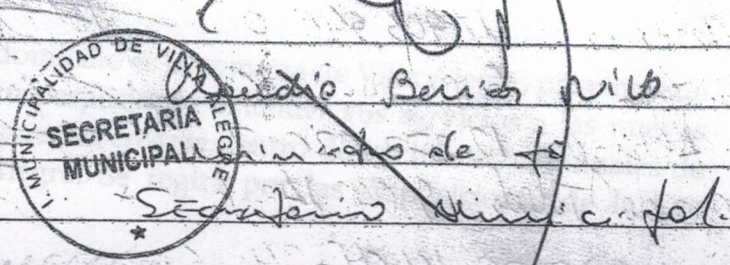 I. MUNICIPALIDAD DE VILLA ALEGRE
SECRETARIA
MUNICIPAL
Claudio
Ministro de fe
Secretario Municipal.